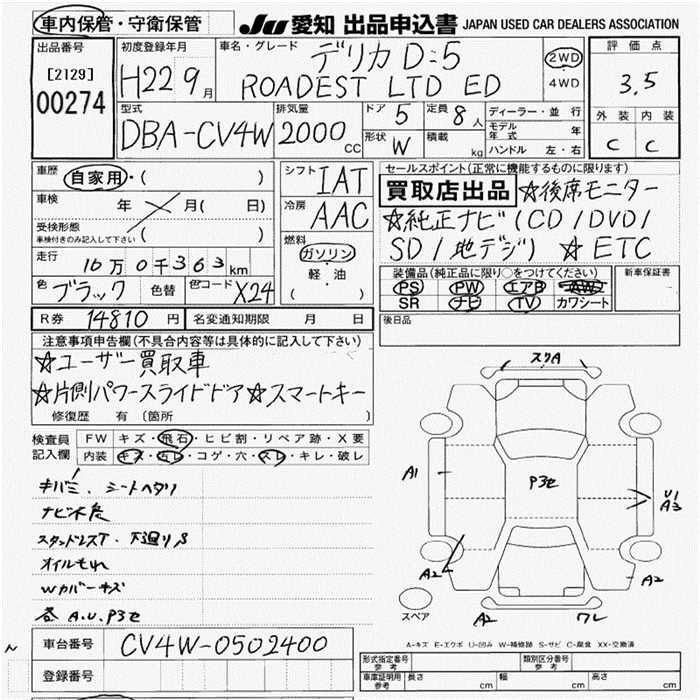 車内保管・守衛保管
JU 愛知 出品申込書 JAPAN USED CAR DEALERS ASSOCIATION
出品番号
[2129]
00274
初度登録年月
H22 9月
車名・グレード
デリカ D:5
ROADEST LTD ED
2WD
・
4WD
評価点
3.5
外装 内装
C C
型式
DBA-CV4W
排気量
2000 CC
ドア 5
定員 8人
形状 W
積載 kg
ディーラー・並行
モデル年式 年
ハンドル 左・右
車歴
自家用・( )
車検 年 月( 日)
受検形態
車検付きのみ記入して下さい ( )
走行 10万0千363km
色 ブラック 色替 色コード X24
シフト IAT
冷房 AAC
燃料
ガソリン
・
軽・油
( )
セールスポイント(正常に機能するものに限ります)
買取店出品 ☆後席モニター
☆純正ナビ(CD/DVD/
SD/地デジ) ☆ETC
装備品(純正品に限り○をつけてください)
PS PW エアB AW
SR ナビ TV カワシート
新車保証書
R券 14810円 名変通知期限 月 日
後日品
注意事項申告欄(不具合内容等は具体的に記入して下さい)
☆ユーザー買取車
☆片側パワースライドドア☆スマートキー
修復歴 有(箇所 )
検査員記入欄
FW キズ・飛石・ヒビ割・リペア跡・X要
内装 キズ・汚レ・コゲ・穴・スレ・キレ・破レ
キバミ、シートヘタリ
ナビ不良
スタッドレスT・下廻りS
オイルもれ
Wカバーキズ
各 A.U.P3セ
車台番号 CV4W-0502400
登録番号
スリA
A1
P3セ
U1
A3
A2
A2
スペア
A2
ワレ
A-キズ E-エクボ U-凹み W-補修跡 S-サビ C-腐食 XX-交換済
形式指定番号 参考
類別区分番号 参考
車庫証明用 参考 長さ cm 幅 cm 高さ cm